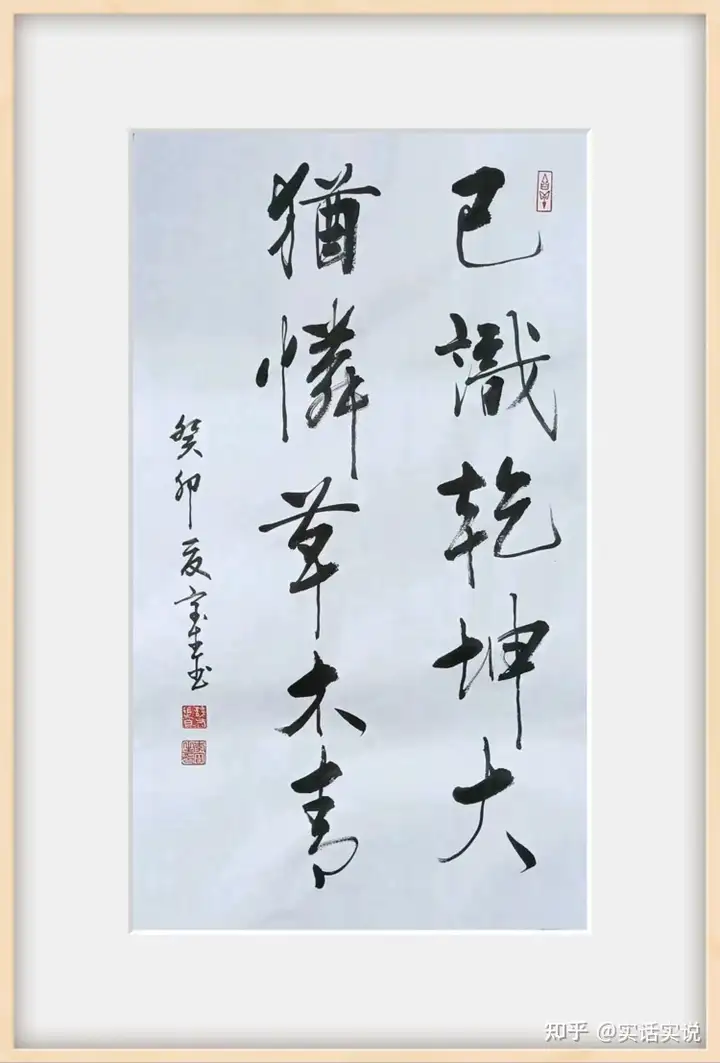 已識乾坤大
猶憐草木青
癸卯夏
知乎 @实话实说